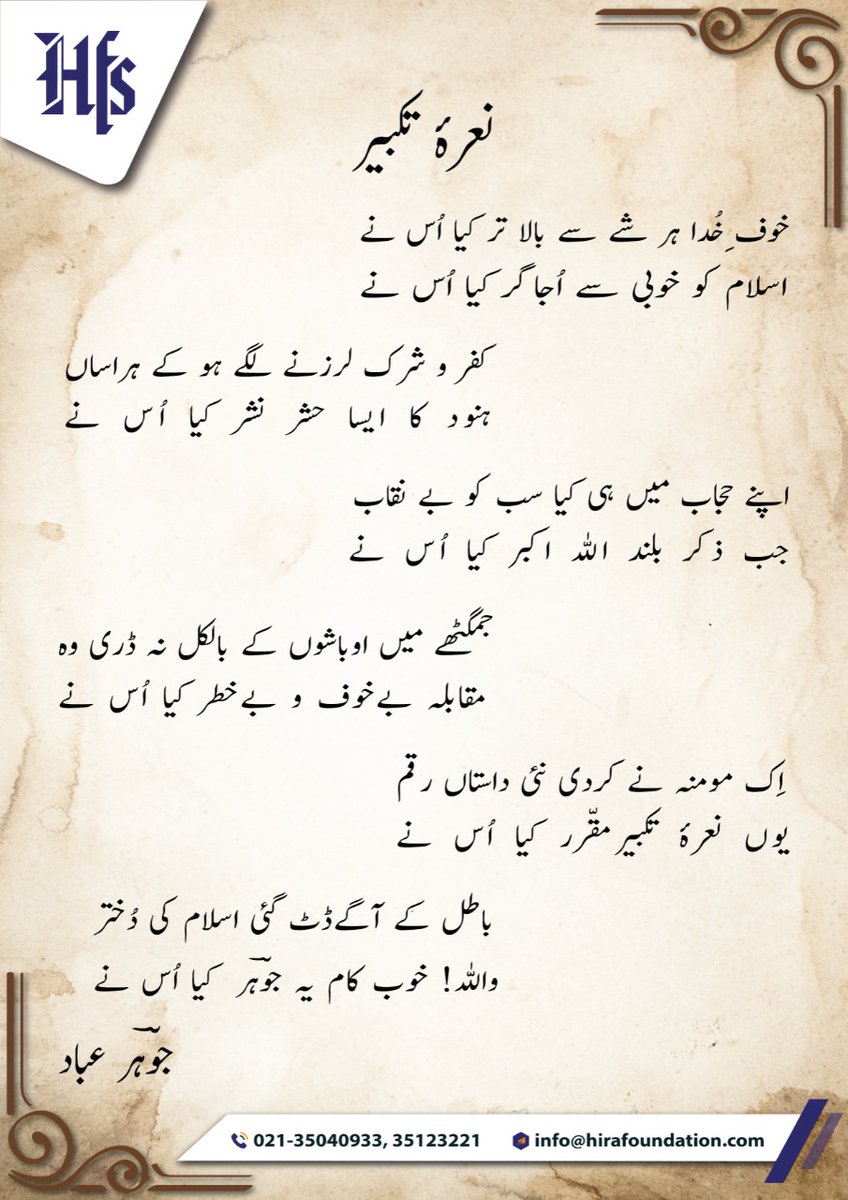 Hfs
نعرۂ تکبیر
خوفِ خُدا ہر شے سے بالا تر کیا اُس نے
اسلام کو خوبی سے اُجاگر کیا اُس نے
کفر و شرک لرزنے لگے ہو کے ہراساں
ہنود کا ایسا حشر نشر کیا اُس نے
اپنے حجاب میں ہی کیا سب کو بے نقاب
جب ذکر بلند اللہ اکبر کیا اُس نے
جمگٹھے میں اوباشوں کے بالکل نہ ڈری وہ
مقابلہ بے خوف و بے خطر کیا اُس نے
اِک مومنہ نے کردی نئی داستاں رقم
یوں نعرۂ تکبیر مقّرر کیا اُس نے
باطل کے آگے ڈٹ گئی اسلام کی دُختر
واللہ! خوب کام یہ جوہرؔ کیا اُس نے
جوہرؔ عباد
021-35040933, 35123221 info@hirafoundation.com